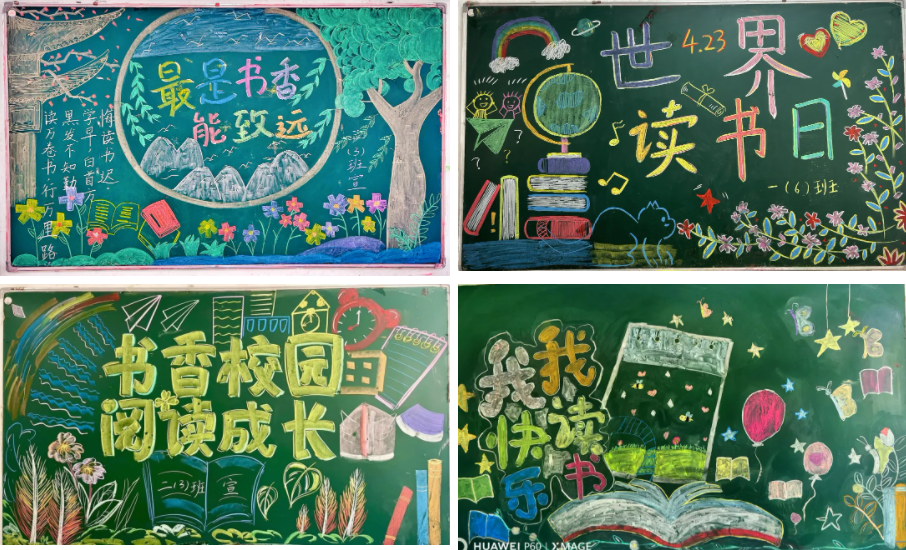 最是书香
能致远
读万卷书 行万里路
黑发不知勤
学早 白首方
悔读书迟
(3)班宣
世界
读书日
4.23
一(6)班
书香校园
阅读成长
二(3)班 宣
我读书
我快乐
HUAWEI P60 | XMAGE